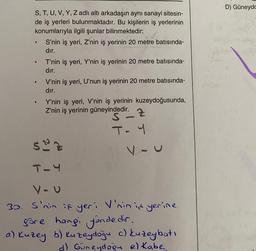 S, T, U, V, Y, Z adlı altı arkadaşın aynı sanayi sitesin-
de iş yerleri bulunmaktadır. Bu kişilerin iş yerlerinin
konumlarıyla ilgili şunlar bilinmektedir:
• S'nin iş yeri, Z'nin iş yerinin 20 metre batısında-
dır.
• T'nin iş yeri, Y'nin iş yerinin 20 metre batısında-
dır.
• V'nin iş yeri, U'nun iş yerinin 20 metre batısında-
dır.
• Y'nin iş yeri, V'nin iş yerinin kuzeydoğusunda,
Z'nin iş yerinin güneyindedir.
D) Güneydo
S - Z
T - Y
V - U
S 20 Z
T - Y
V - U
32. S'nin iş yeri V'nin iş yerine
göre hangi yöndedir.
a) Kuzey b) Kuzeydoğu c) Kuzeybatı
d) Güneydoğu e)